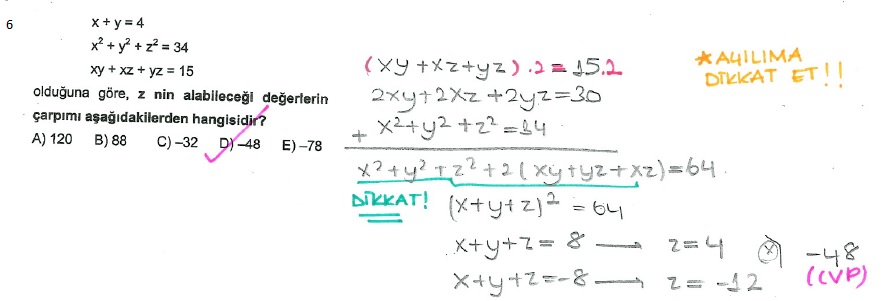 6
x + y = 4
x² + y² + z² = 34
xy + xz + yz = 15
olduğuna göre, z nin alabileceği değerlerin
çarpımı aşağıdakilerden hangisidir?
A) 120 B) 88 C) –32 D) –48 E) –78
(xy + xz + yz) . 2 = 15.2
2xy + 2xz + 2yz = 30
+ x² + y² + z² = 34
x² + y² + z² + 2(xy + yz + xz) = 64
DİKKAT!
(x+y+z)² = 64
x+y+z = 8 → z = 4
x+y+z = -8 → z = -12
(x) -48
(CVP)
* AÇILIMA
DİKKAT ET!!